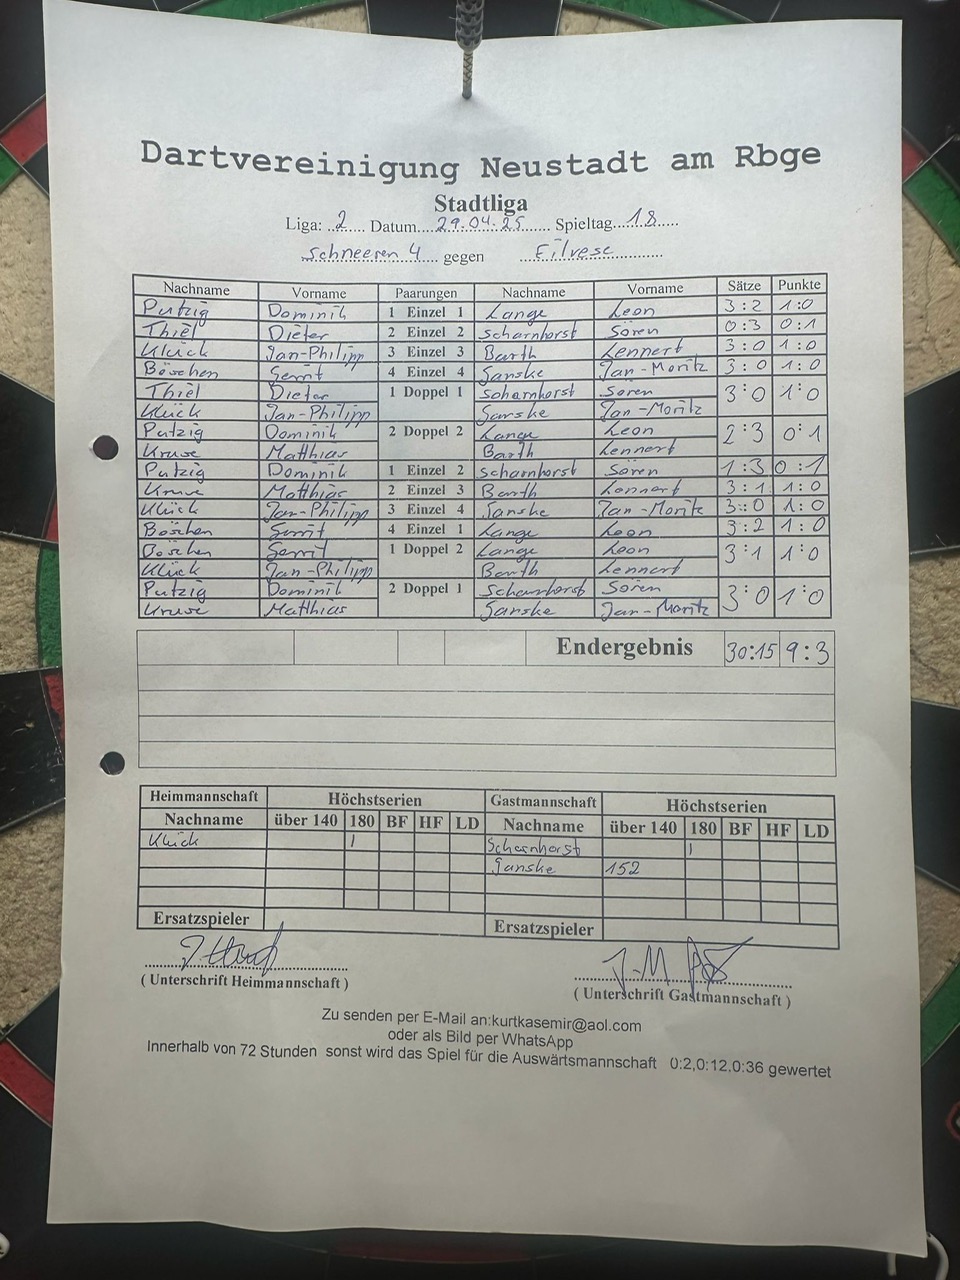 Dartvereinigung Neustadt am Rbge
Stadtliga
Liga: 2 Datum 29.04.25 Spieltag 18
Schneeren 4 gegen Eilvese
Nachname Vorname Paarungen Nachname Vorname Sätze Punkte
Putzig Dominik 1 Einzel 1 Lange Leon 3:2 1:0
Thiel Dieter 2 Einzel 2 Scharnhorst Sören 0:3 0:1
Klück Jan-Philipp 3 Einzel 3 Barth Lennert 3:0 1:0
Böschen Gerrit 4 Einzel 4 Ganske Jan-Moritz 3:0 1:0
Thiel Dieter 1 Doppel 1 Scharnhorst Sören 3:0 1:0
Klück Jan-Philipp Ganske Jan-Moritz
Putzig Dominik 2 Doppel 2 Lange Leon 2:3 0:1
Kruse Matthias Barth Lennert
Putzig Dominik 1 Einzel 2 Scharnhorst Sören 1:3 0:1
Kruse Matthias 2 Einzel 3 Barth Lennert 3:1 1:0
Klück Jan-Philipp 3 Einzel 4 Ganske Jan-Moritz 3:0 1:0
Böschen Gerrit 4 Einzel 1 Lange Leon 3:2 1:0
Böschen Gerrit 1 Doppel 2 Lange Leon 3:1 1:0
Klück Jan-Philipp Barth Lennert
Putzig Dominik 2 Doppel 1 Scharnhorst Sören 3:0 1:0
Kruse Matthias Ganske Jan-Moritz
Endergebnis 30:15 9:3
Heimmannschaft Höchstserien Gastmannschaft Höchstserien
Nachname über 140 180 BF HF LD Nachname über 140 180 BF HF LD
Klück I Scharnhorst I
Ganske 152
Ersatzspieler Ersatzspieler
( Unterschrift Heimmannschaft ) ( Unterschrift Gastmannschaft )
Zu senden per E-Mail an:kurtkasemir@aol.com
oder als Bild per WhatsApp
Innerhalb von 72 Stunden sonst wird das Spiel für die Auswärtsmannschaft 0:2,0:12,0:36 gewertet